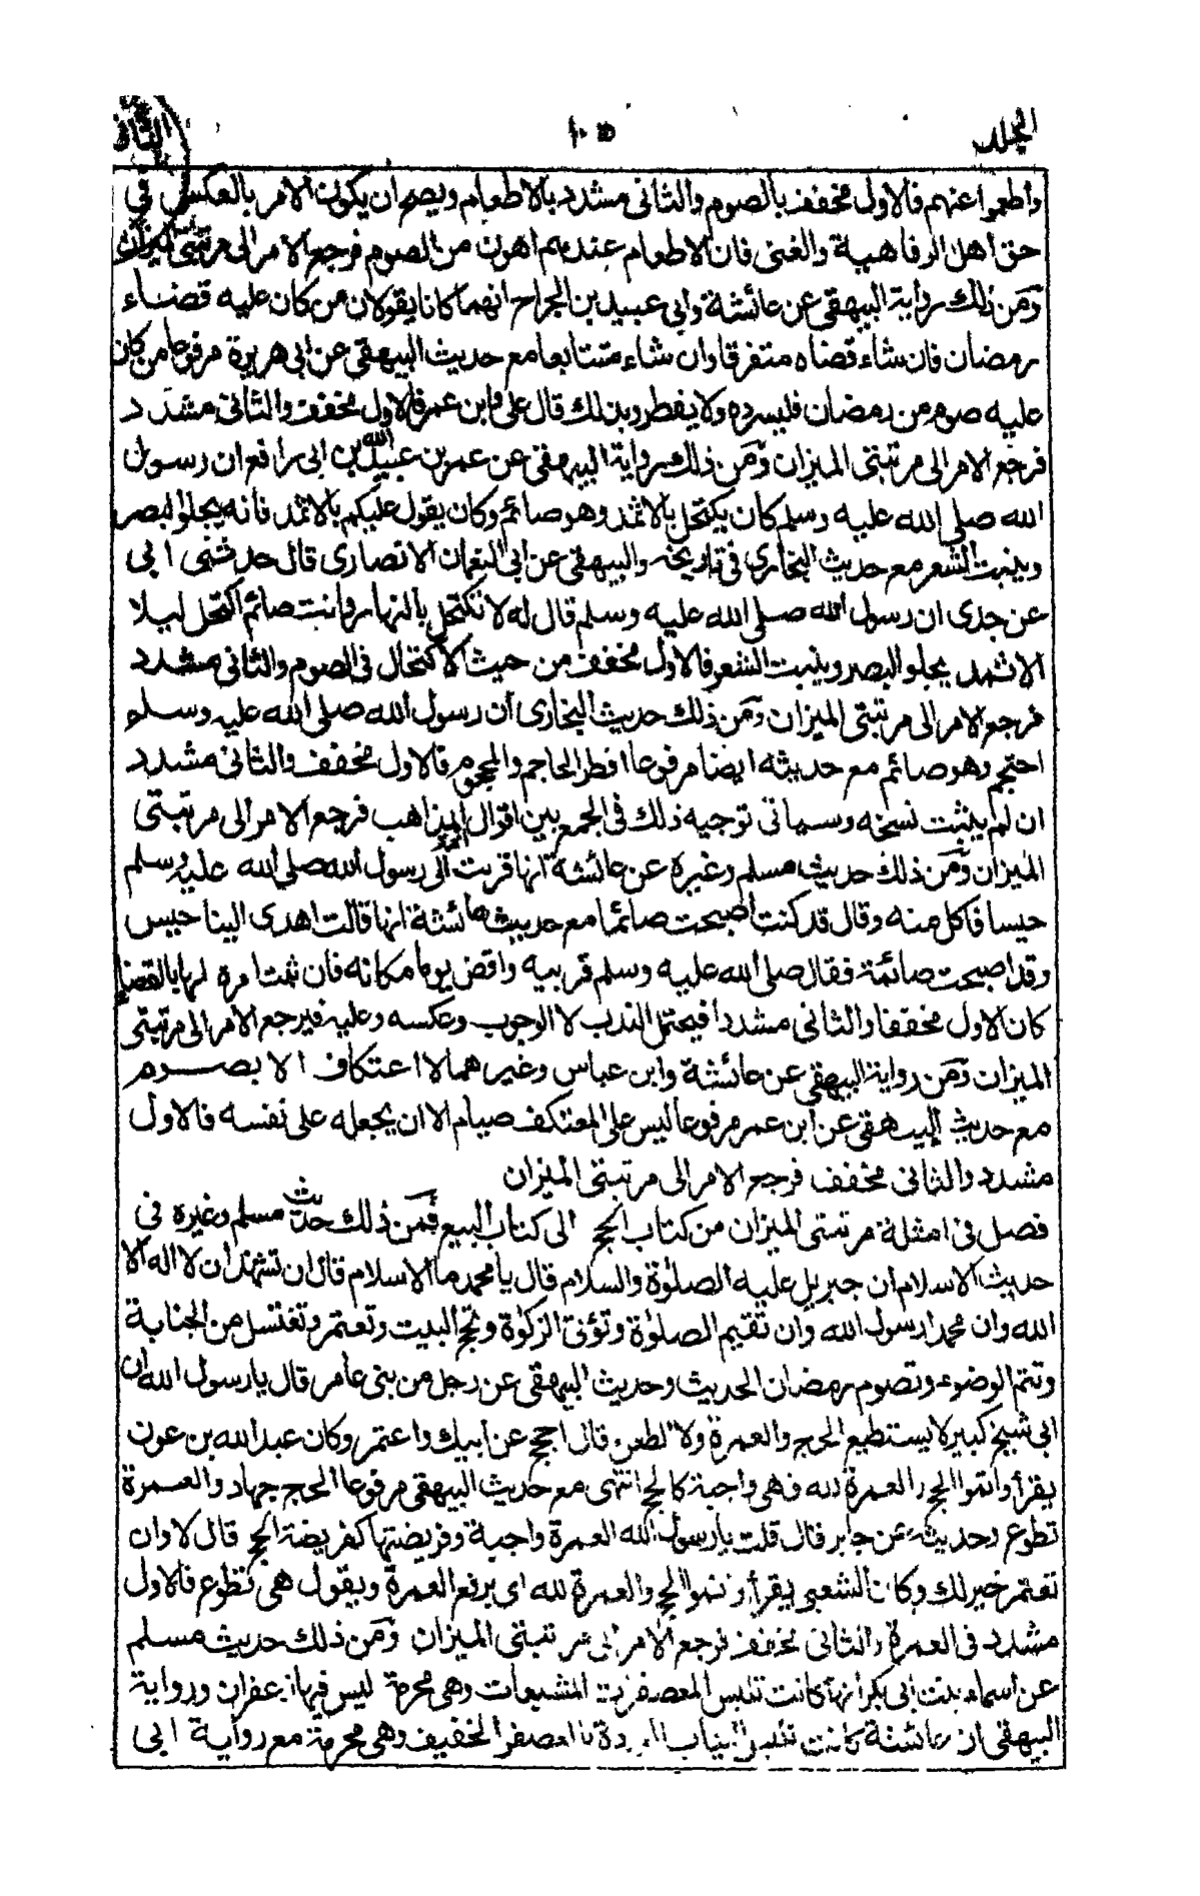 المجلد ١٠٥ الثانى
واطعموا عنهم فالاول مخفف بالصوم والثانى مشدد بالاطعام ويصح ان يكون الامر بالعكس فى
حق اهل الرفاهية والغنى فان الاطعام عندهم اهون من الصوم فرجع الامر الى مرتبتى الميزان
ومن ذلك رواية البيهقى عن عائشة وابى عبيد بن الجراح انهما كانا يقولان من كان عليه قضاء
رمضان فان شاء قضاه متفرقا وان شاء متتابعا مع حديث البيهقى عن ابى هريرة مرفوعا من كان
عليه صوم من رمضان فليسرده ولا يفطر وبذلك قال على وابن عمر فالاول مخفف والثانى مشدد
فرجع الامر الى مرتبتى الميزان ومن ذلك رواية البيهقى عن عمر بن عبيد الله بن ابى رافع ان رسول
الله صلى الله عليه وسلم كان يكتحل بالاثمد وهو صائم وكان يقول عليكم بالاثمد فانه يجلو البصر
وينبت الشعر مع حديث البخارى فى تاريخه والبيهقى عن ابى النعمان الانصارى قال حدثنى ابى
عن جدى ان رسول الله صلى الله عليه وسلم قال له لا تكتحل بالنهار وانت صائم اكتحل ليلا
الاثمد يجلو البصر وينبت الشعر فالاول مخفف من حيث الاكتحال فى الصوم والثانى مشدد
فرجع الامر الى مرتبتى الميزان ومن ذلك حديث البخارى ان رسول الله صلى الله عليه وسلم
احتجم وهو صائم مع حديثه ايضا مرفوعا افطر الحاجم والمحجوم فالاول مخفف والثانى مشدد
ان لم يثبت نسخه وسياتى توجيه ذلك فى الجمع بين اقوال المذاهب فرجع الامر الى مرتبتى
الميزان ومن ذلك حديث مسلم وغيره عن عائشة انها قربت الى رسول الله صلى الله عليه وسلم
حيسا فاكل منه وقال قد كنت اصبحت صائما مع حديث عائشة انها قالت اهدى الينا حيس
وقد اصبحت صائمة فقال صلى الله عليه وسلم قربيه واقض يوما مكانه فان ثبت امره لها بالقضاء
كان الاول مخففا والثانى مشددا فيحتمل الندب لا الوجوب وعكسه وعليه فيرجع الامر الى مرتبتى
الميزان ومن رواية البيهقى عن عائشة وابن عباس وغيرهما لا اعتكاف الا بصوم
مع حديث البيهقى عن ابن عمر مرفوعا ليس على المعتكف صيام الا ان يجعله على نفسه فالاول
مشدد والثانى مخفف فرجع الامر الى مرتبتى الميزان
فصل فى امثلة مرتبتى الميزان من كتاب الحج الى كتاب البيع فمن ذلك حديث مسلم وغيره فى
حديث الاسلام ان جبريل عليه الصلوة والسلام قال يا محمد ما الاسلام قال ان تشهد ان لا اله الا
الله وان محمدا رسول الله وان تقيم الصلوة وتؤتى الزكوة وتحج البيت وتعتمر وتغتسل من الجنابة
وتتم الوضوء وتصوم رمضان الحديث وحديث البيهقى عن رجل من بنى عامر قال يا رسول الله ان
ابى شيخ كبير لا يستطيع الحج والعمرة ولا الظعن قال احجج عن ابيك واعتمر وكان عبد الله بن عون
يقرأ واتموا الحج والعمرة لله فهى واجبة كالحج انتهى مع حديث البيهقى مرفوعا الحج جهاد والعمرة
تطوع وحديثه عن جابر قال قلت يا رسول الله العمرة واجبة وفريضتها كفريضة الحج قال لا وان
تعتمر خير لك وكان الشعبى يقرأ واتموا الحج والعمرة لله اى برفع العمرة ويقول هى تطوع فالاول
مشدد فى العمرة والثانى مخفف فرجع الامر الى مرتبتى الميزان ومن ذلك حديث مسلم
عن اسماء بنت ابى بكر انها كانت تلبس المعصفرات المشبعات وهى محرمة ليس فيها زعفران ورواية
البيهقى ان عائشة كانت تلبس الثياب الموردة بالعصفر الخفيف وهى محرمة مع رواية ابى